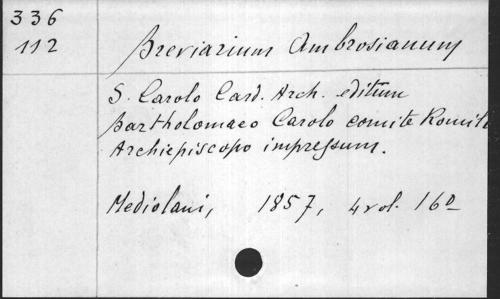 336
112
Breviarium Ambrosianum
S. Carolo Card. Arch. editum
Bartholomaeo Carolo comite Romilli
Archiepiscopo impressum.
Mediolani, 1857, 4 vol. 16º